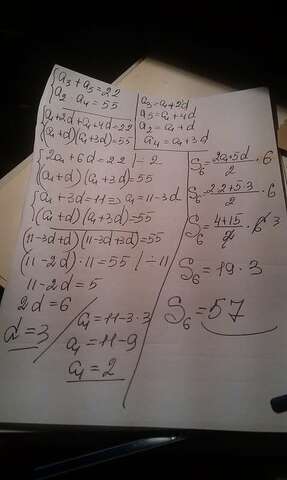 {a₃ + a₅ = 22
a₂ · a₄ = 55
a₃ = a₁ + 2d
a₅ = a₁ + 4d
a₂ = a₁ + d
a₄ = a₁ + 3d
{a₁ + 2d + a₁ + 4d = 22
(a₁ + d)(a₁ + 3d) = 55
{2a₁ + 6d = 22 | ÷ 2
(a₁ + d)(a₁ + 3d) = 55
{a₁ + 3d = 11 => a₁ = 11 - 3d
(a₁ + d)(a₁ + 3d) = 55
(11 - 3d + d)(11 - 3d + 3d) = 55
(11 - 2d) · 11 = 55 | ÷ 11
11 - 2d = 5
2d = 6
d = 3
a₁ = 11 - 3 · 3
a₁ = 11 - 9
a₁ = 2
S₆ = 2a₁ + 5d / 2 · 6
S₆ = 2·2 + 5·3 / 2 · 6
S₆ = 4 + 15 / 2 · 6 3
S₆ = 19 · 3
S₆ = 57